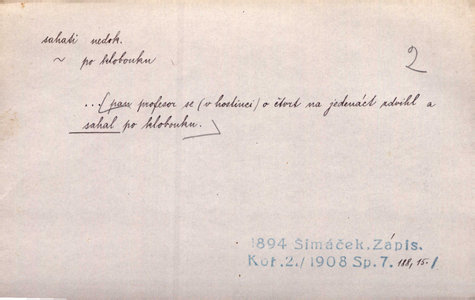 sahati nedok.
~ po klobouku
2
..(pan profesor se (v hostinci) o čtvrt na jedenáct zdvihl a
sahal po klobouku.
1894 Šimáček, Zápis.
Koř.2./1908 Sp.7. 188, 15./